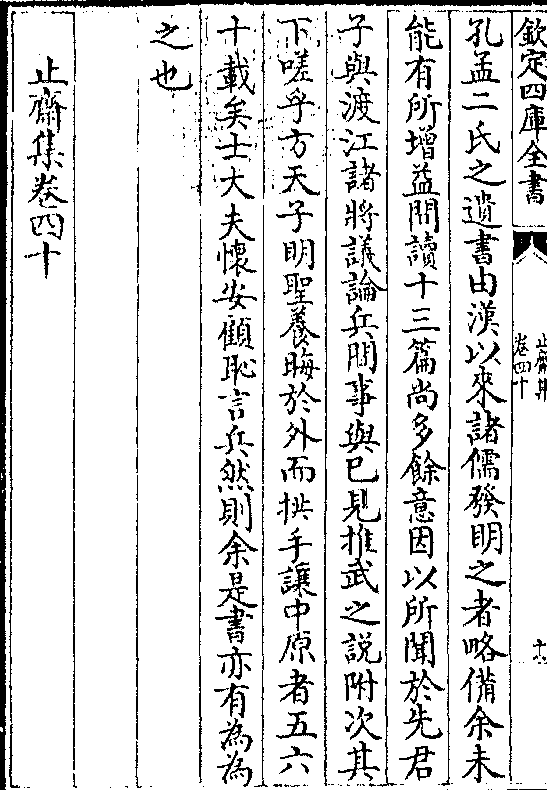 欽定四庫全書
止齋集
卷四十
孔孟二氏之遺書由漢以來諸儒發明之者略備余未
能有所增益間讀十三篇尚多餘意因以所聞於先君
子與渡江諸將議論兵間事與已見推武之説附次其
下嗟乎方天子明聖養晦於外而拱手讓中原者五六
十載矣士大夫懷安顧恥言兵然則余是書亦有為為
之也
止齋集卷四十